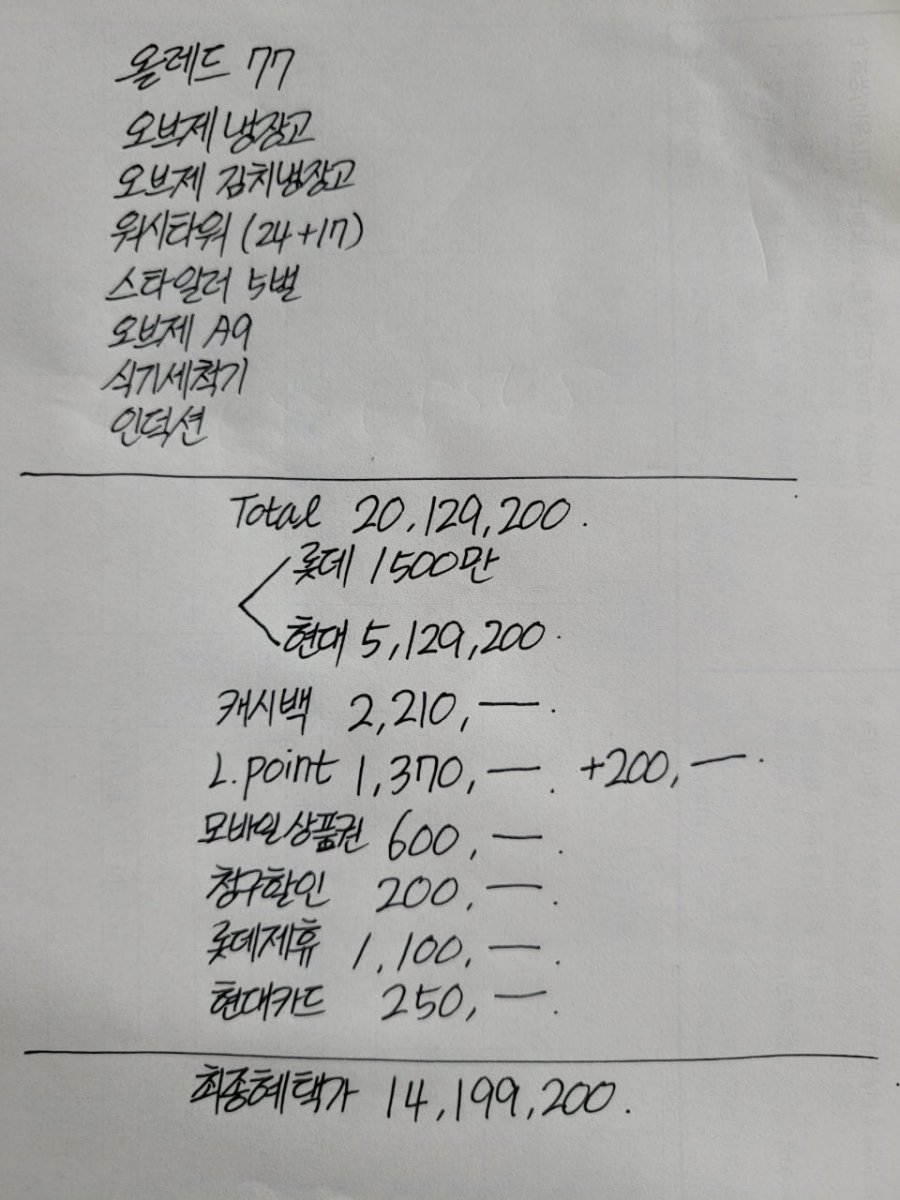 올레드 77
오브제 냉장고
오브제 김치냉장고
워시타워 (24+17)
스타일러 5벌
오브제 A9
식기세척기
인덕션
Total 20,129,200.
롯데 1500만
현대 5,129,200.
캐시백 2,210,—.
L.point 1,370,—. +200,—.
모바일상품권 600,—.
청구할인 200,—.
롯데제휴 1,100,—.
현대카드 250,—.
최종혜택가 14,199,200.